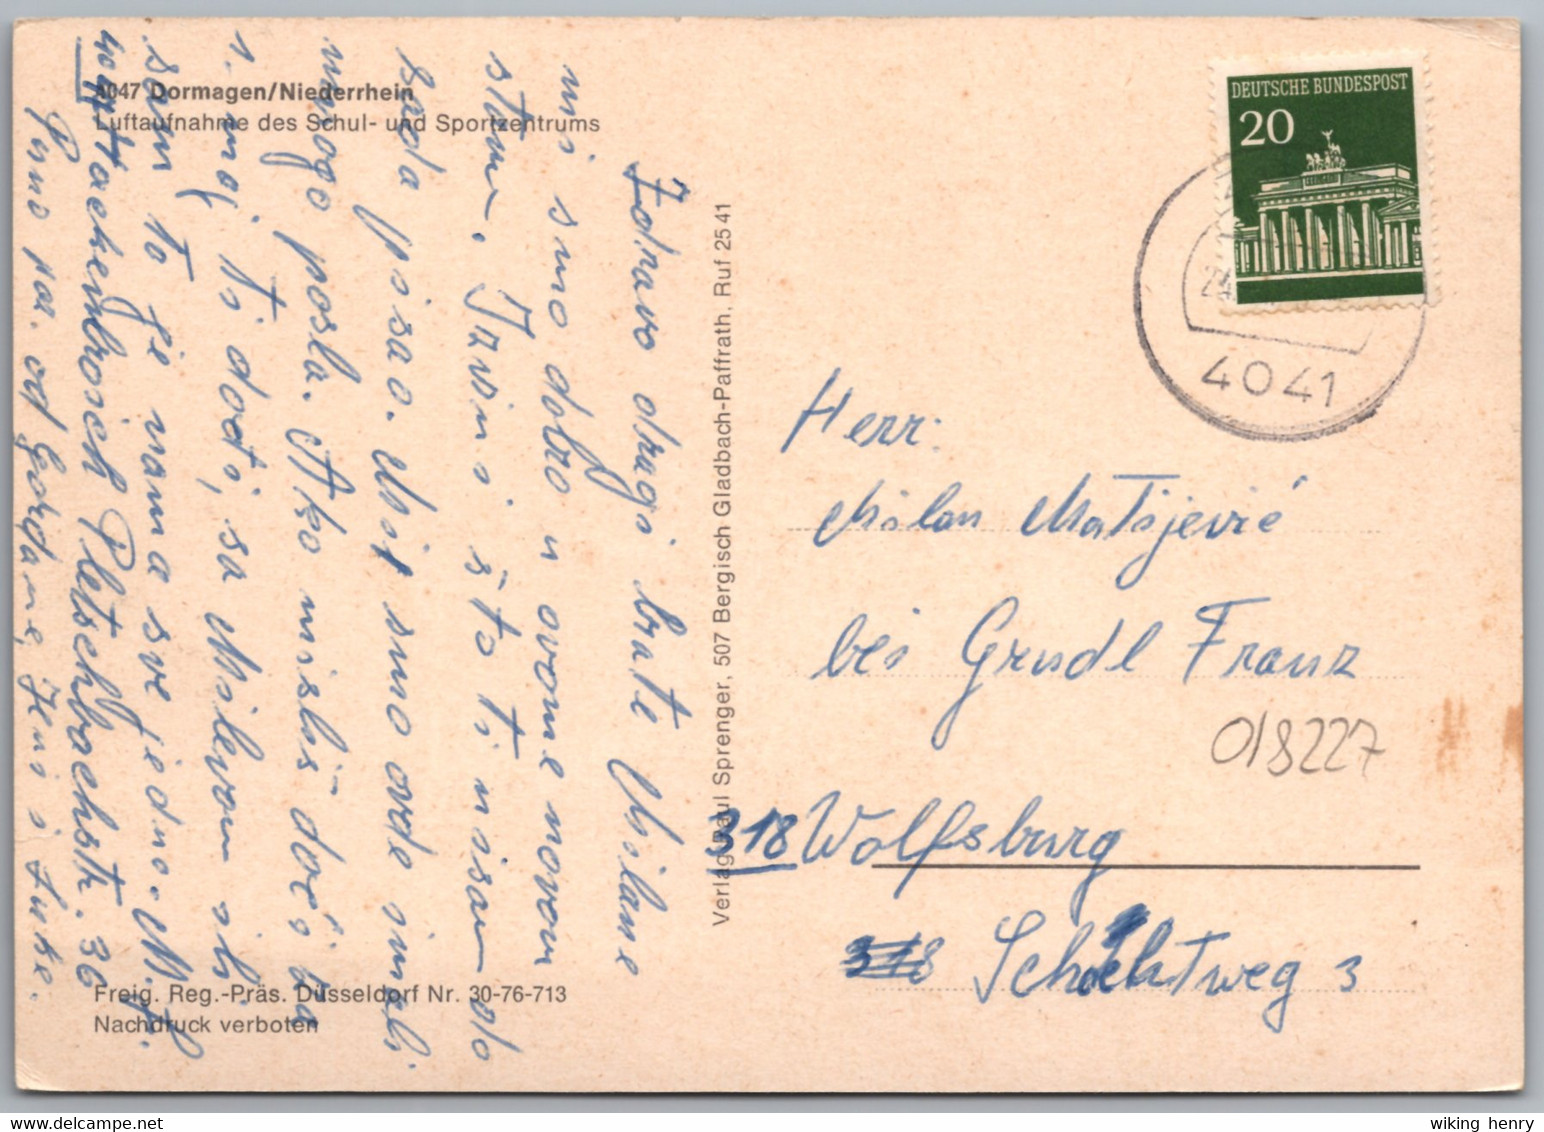 4047 Dormagen/Niederrhein
Luftaufnahme des Schul- und Sportzentrums
Zdravo dragi brate Milane
mi smo dobro u ovome novom
stanu. Izvini što ti nisam do
sada pisao. Mi smo ovde imali
mnogo posla. Ako misliš doći ka
moj ti dođi, sa Milevom ili
sam to je nama sve jedno. M. J.
4041 Hackenbroich Pletschbachstr. 36
Puno poz. od Gordane,
Verlag Paul Sprenger, 507 Bergisch Gladbach-Paffrath, Ruf 25 41
Freig. Reg.-Präs. Düsseldorf Nr. 30-76-713
Nachdruck verboten
DEUTSCHE BUNDESPOST
20
4041
Herr:
Milan Matijević
bei Grudl Franz
018227
318 Wolfsburg
318 Schlichtweg 3
wiking henry